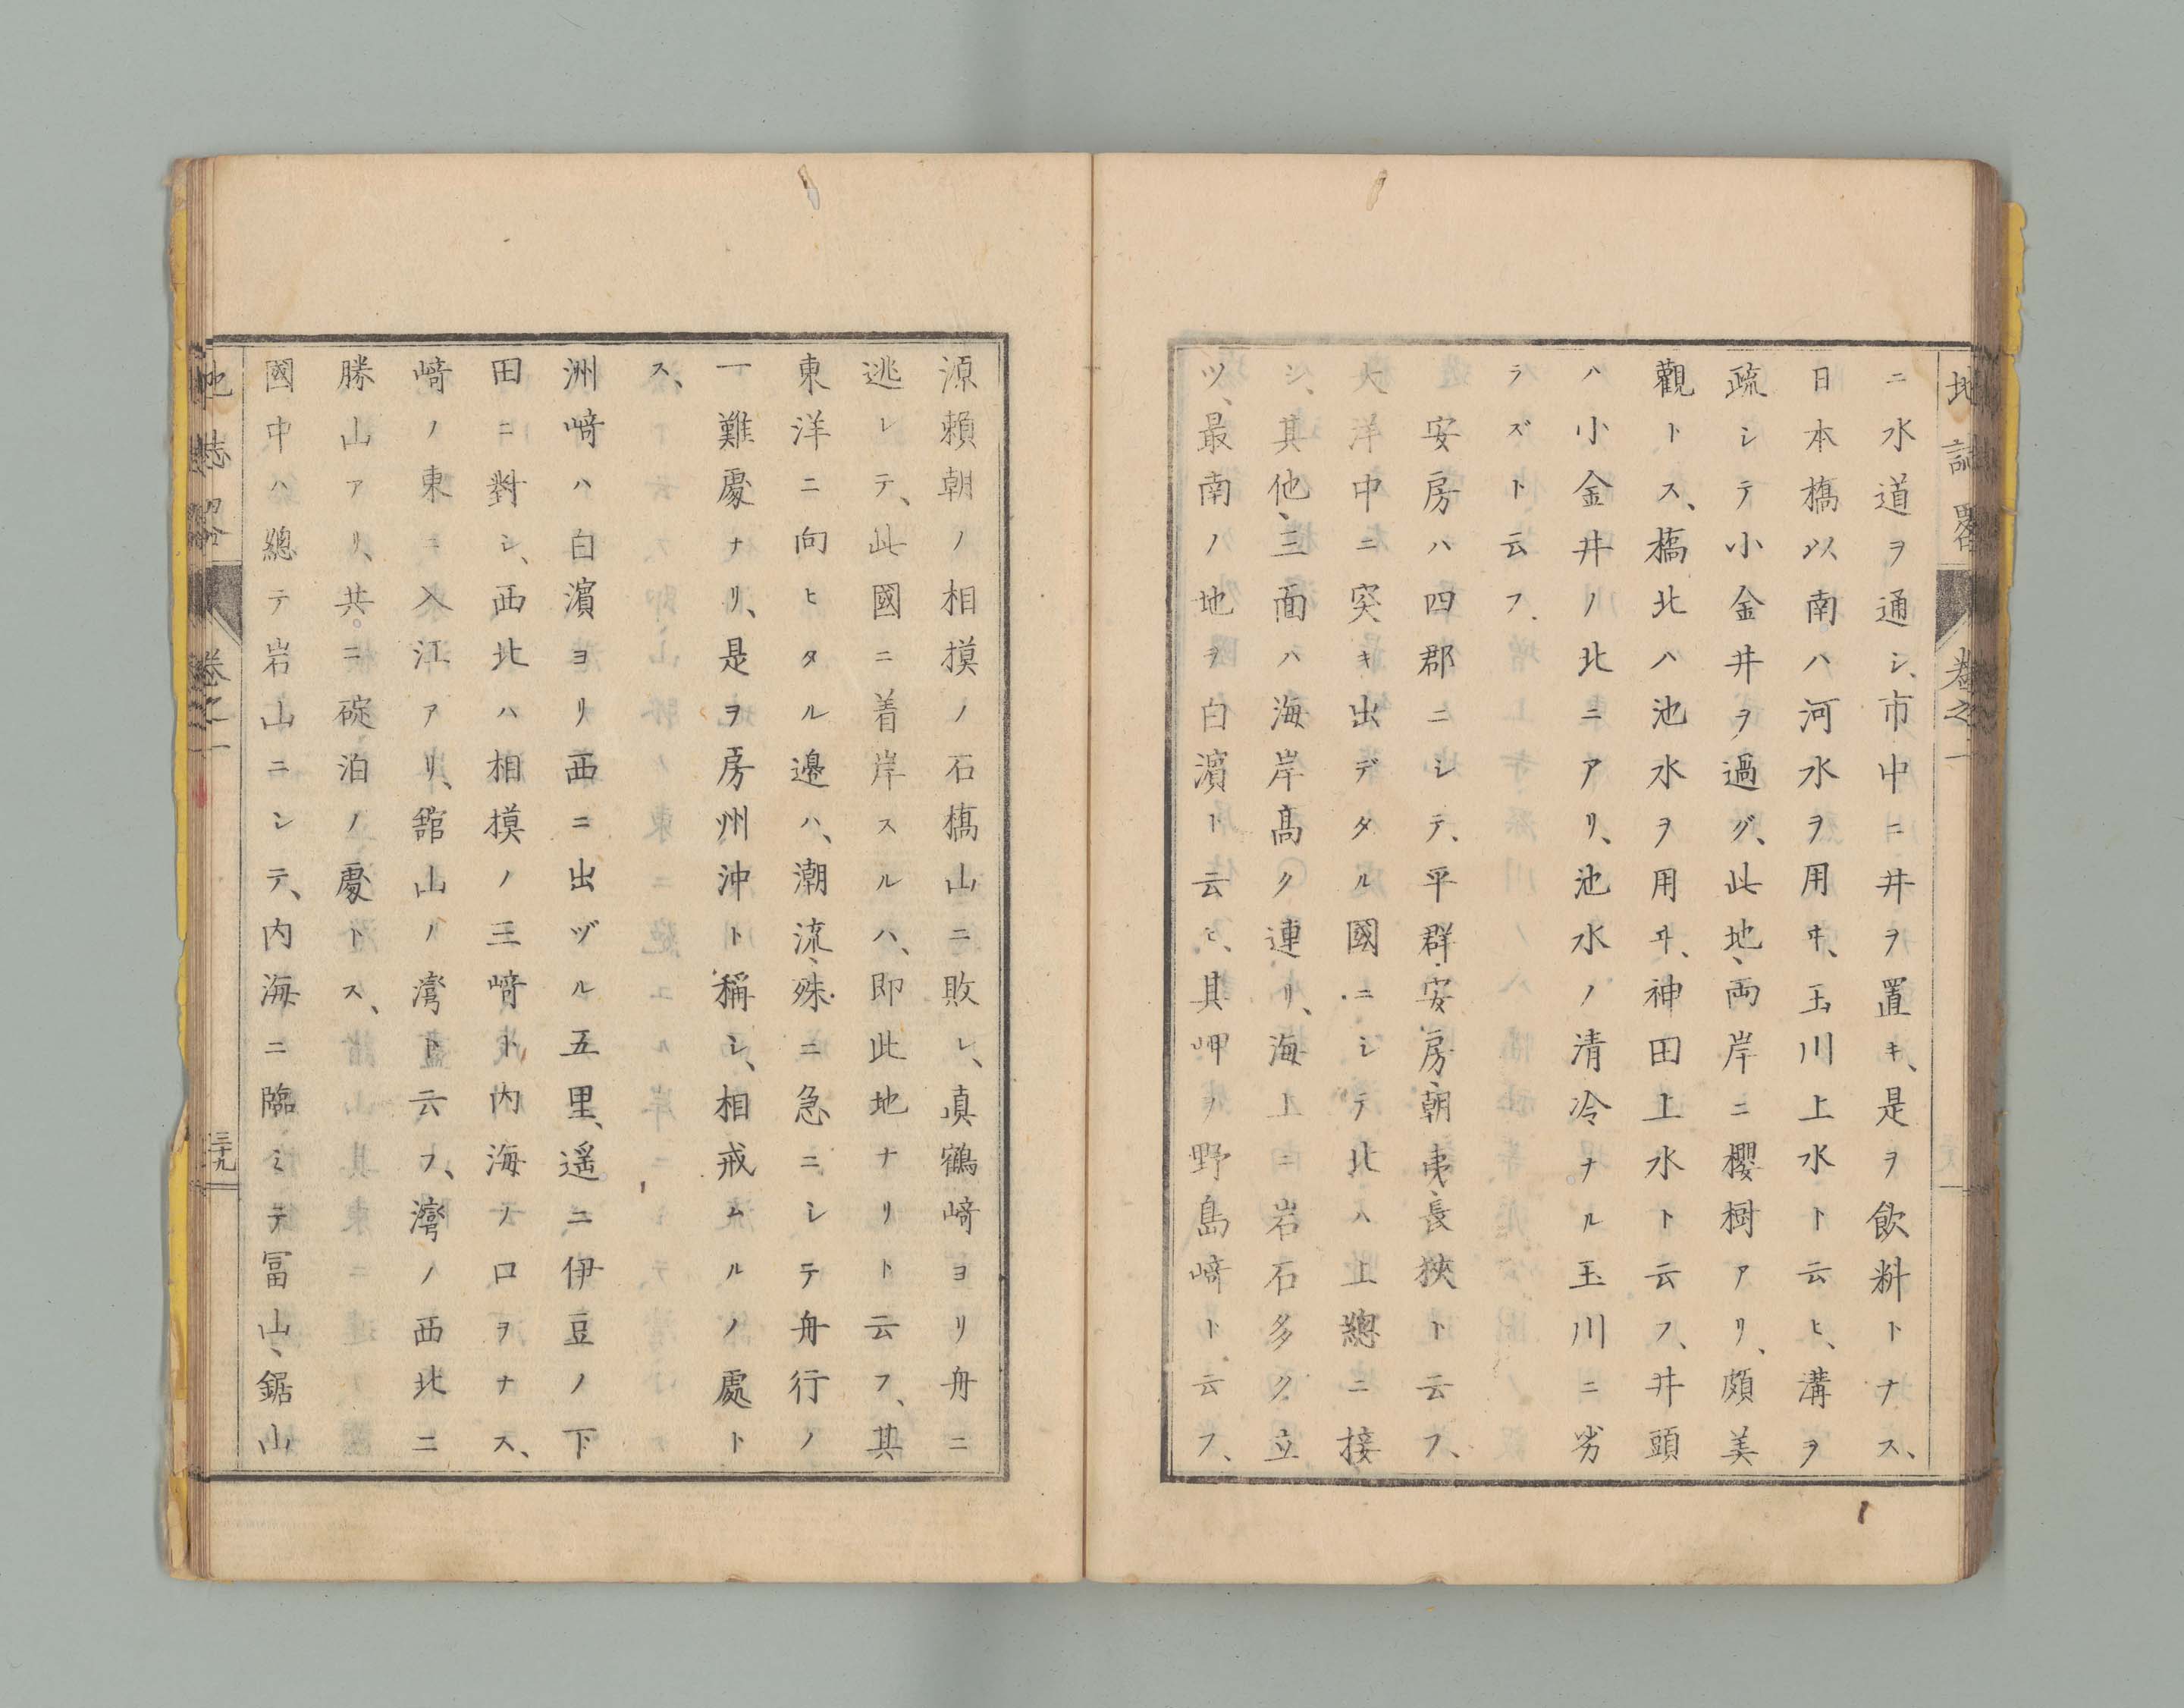 地誌畧 卷之一
ニ水道ヲ通シ、市中ニ井ヲ置キ、是ヲ飲料トナス、
日本橋以南ハ河水ヲ用ヰ、玉川上水ト云ヒ、溝ヲ
疏シテ小金井ヲ過グ、此地、両岸ニ櫻樹アリ、頗美
觀トス、橋北ハ池水ヲ用ヰ、神田上水ト云フ、井頭
ハ小金井ノ北ニアリ、池水ノ清冷ナル玉川ニ劣
ラズト云フ、
安房ハ四郡ニシテ、平群、安房、朝夷、長狹ト云フ、
大洋中ニ突キ出デタル國ニシテ北ハ上總ニ接
シ、其他、三面ハ海岸高ク連リ、海上ニ岩石多ク立
ツ、最南ノ地ヲ白濱ト云ヒ、其岬ヲ野島﨑ト云フ、
源頼朝ノ相摸ノ石橋山ニ敗レ、眞鶴﨑ヨリ舟ニ
逃レテ、此國ニ着岸スルハ、即此地ナリト云フ、其
東洋ニ向ヒタル邉ハ、潮流、殊ニ急ニシテ舟行ノ
一難處ナリ、是ヲ房州沖ト稱シ、相戒ムルノ處ト
ス、
洲﨑ハ白濱ヨリ西ニ出ヅル五里、遙ニ伊豆ノ下
田ニ對シ、西北ハ相摸ノ三﨑ト内海ノ口ヲナス、
﨑ノ東ニ入江アリ、舘山ノ灣ト云フ、灣ノ西北ニ
勝山アリ、共ニ碇泊ノ處トス、
國中ハ總テ岩山ニシテ、内海ニ臨ミテ冨山、鋸山
地誌畧 卷之一 三十九